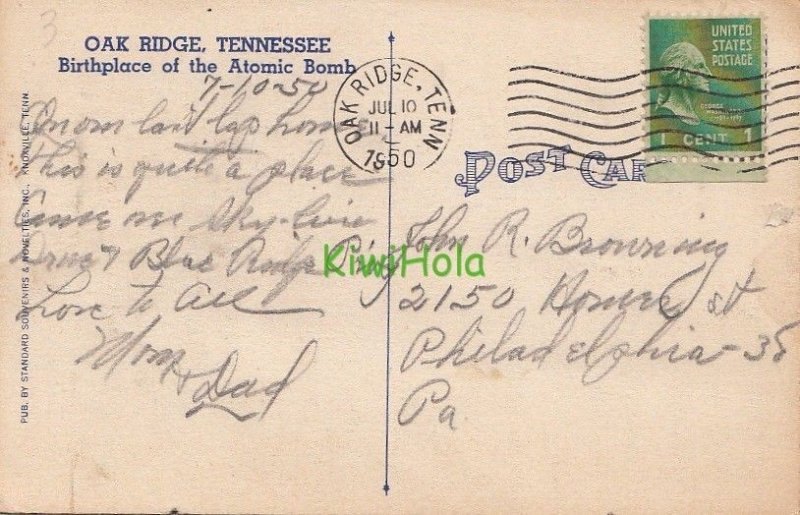 3
OAK RIDGE, TENNESSEE
Birthplace of the Atomic Bomb
7-10-50
On our last lap home
This is quite a place
Came on Sky-line
Drive & Blue Ridge Pkwy
Love to All
Mom
& Dad
PUB. BY STANDARD SOUVENIRS & NOVELTIES, INC. KNOXVILLE, TENN.
OAK RIDGE, TENN
JUL 10
11-AM
1950
UNITED
STATES
POSTAGE
GEORGE
1 CENT 1
POST CAR
KiwiHola
John R. Browning
2150 St
Philadelphia-38
Pa.